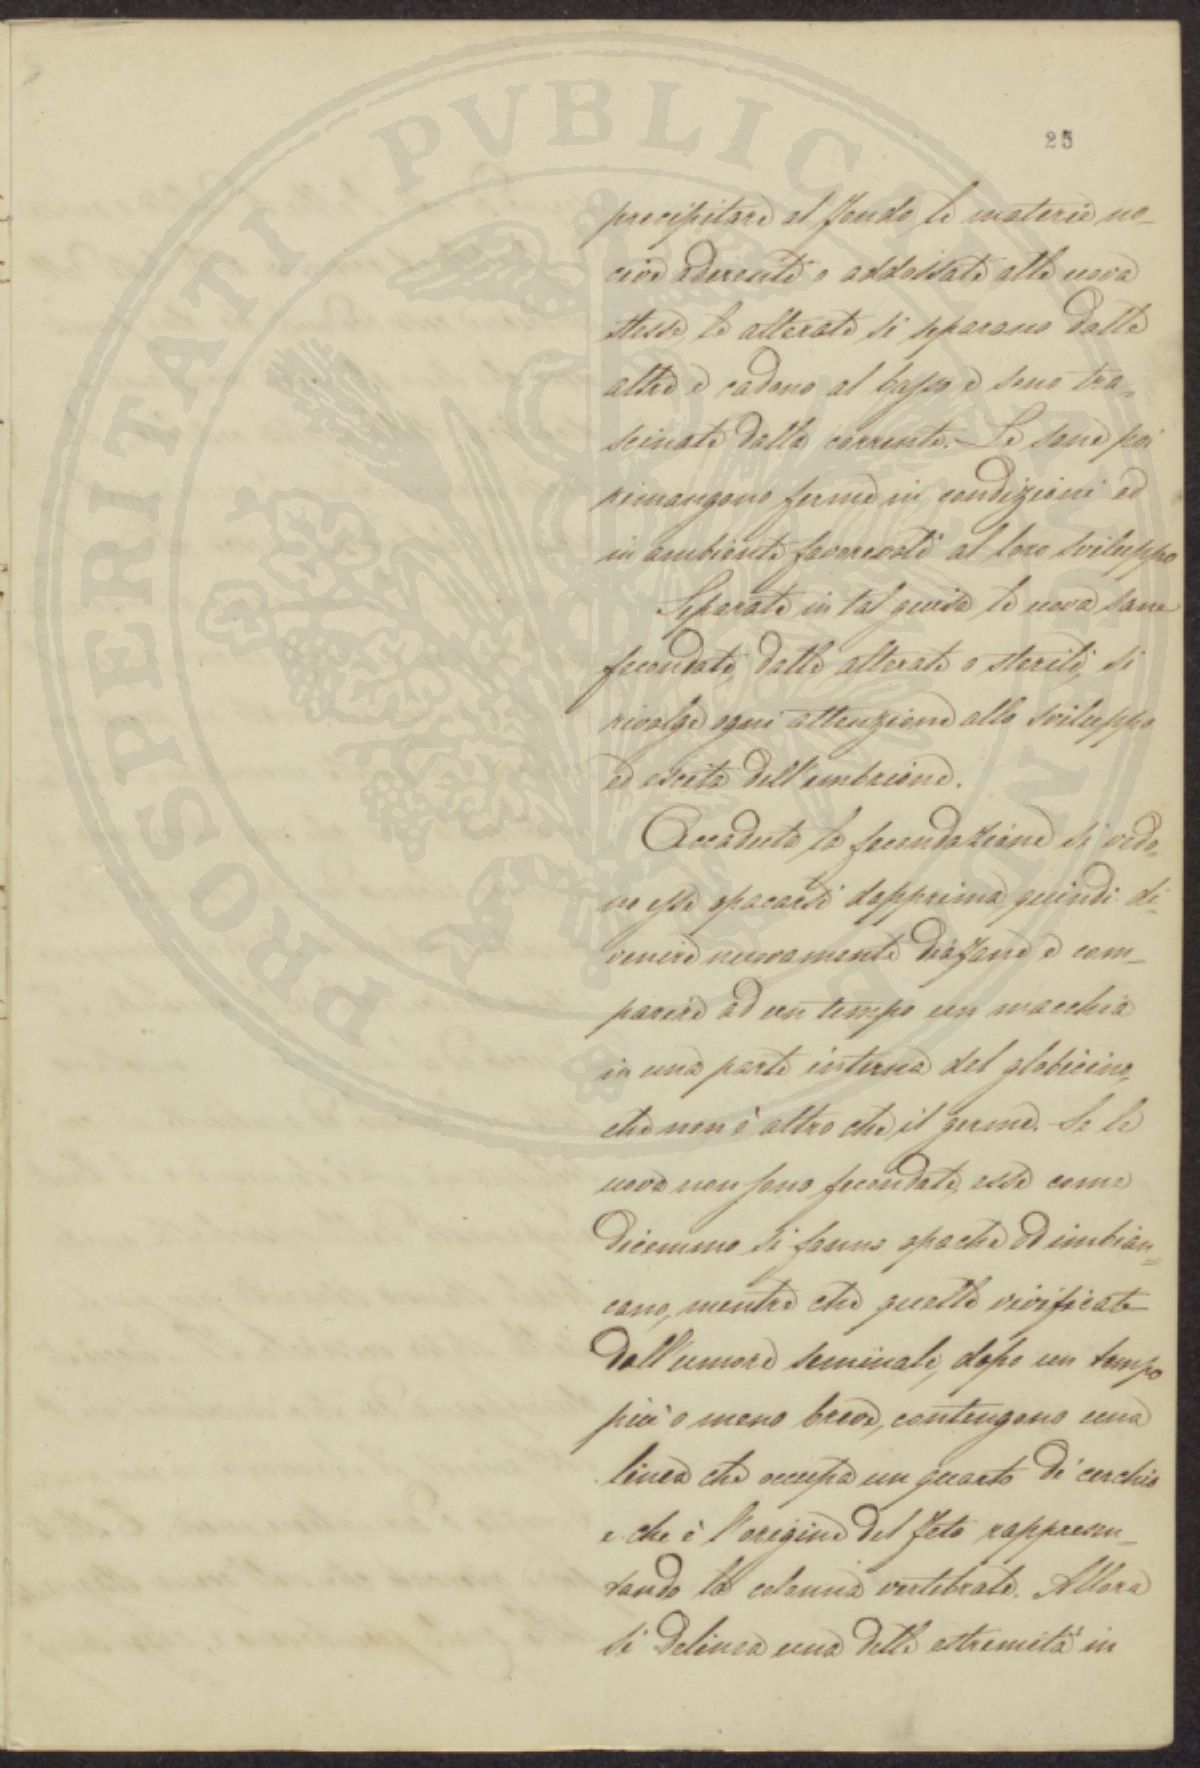 25
precipitare al fondo le materie no-
cive aderenti o addossate alle uova
stesse, le alterate si separano dalle
altre e cadono al basso e sono tra-
scinate dalla corrente. Le sane poi
rimangono ferme in condizioni ed
in ambiente favorevole al loro sviluppo
Separate in tal guisa le uova sane
fecondate, dalle alterate o sterili, si
rivolge ogni attenzione allo sviluppo
ed escita dell'embrione.
Accaduta la fecondazione si vedo-
no esse opacarsi dapprima, quindi di-
venire nuovamente diafane e com-
parire ad un tempo un macchia
in una parte interna del globicino,
che non è altro che il germe. Se le
uova non sono fecondate, esse come
dicemmo si fanno opache ed imbian-
cano, mentre che quelle vivificate
dall'umore seminale, dopo un tempo
più o meno breve, contengono una
linea che occupa un quarto di cerchio
e che è l'origine del feto rappresen-
tando la colonna vertebrale. Allora
si delinea una delle estremità in
PROSPERITATI PVBLICAE